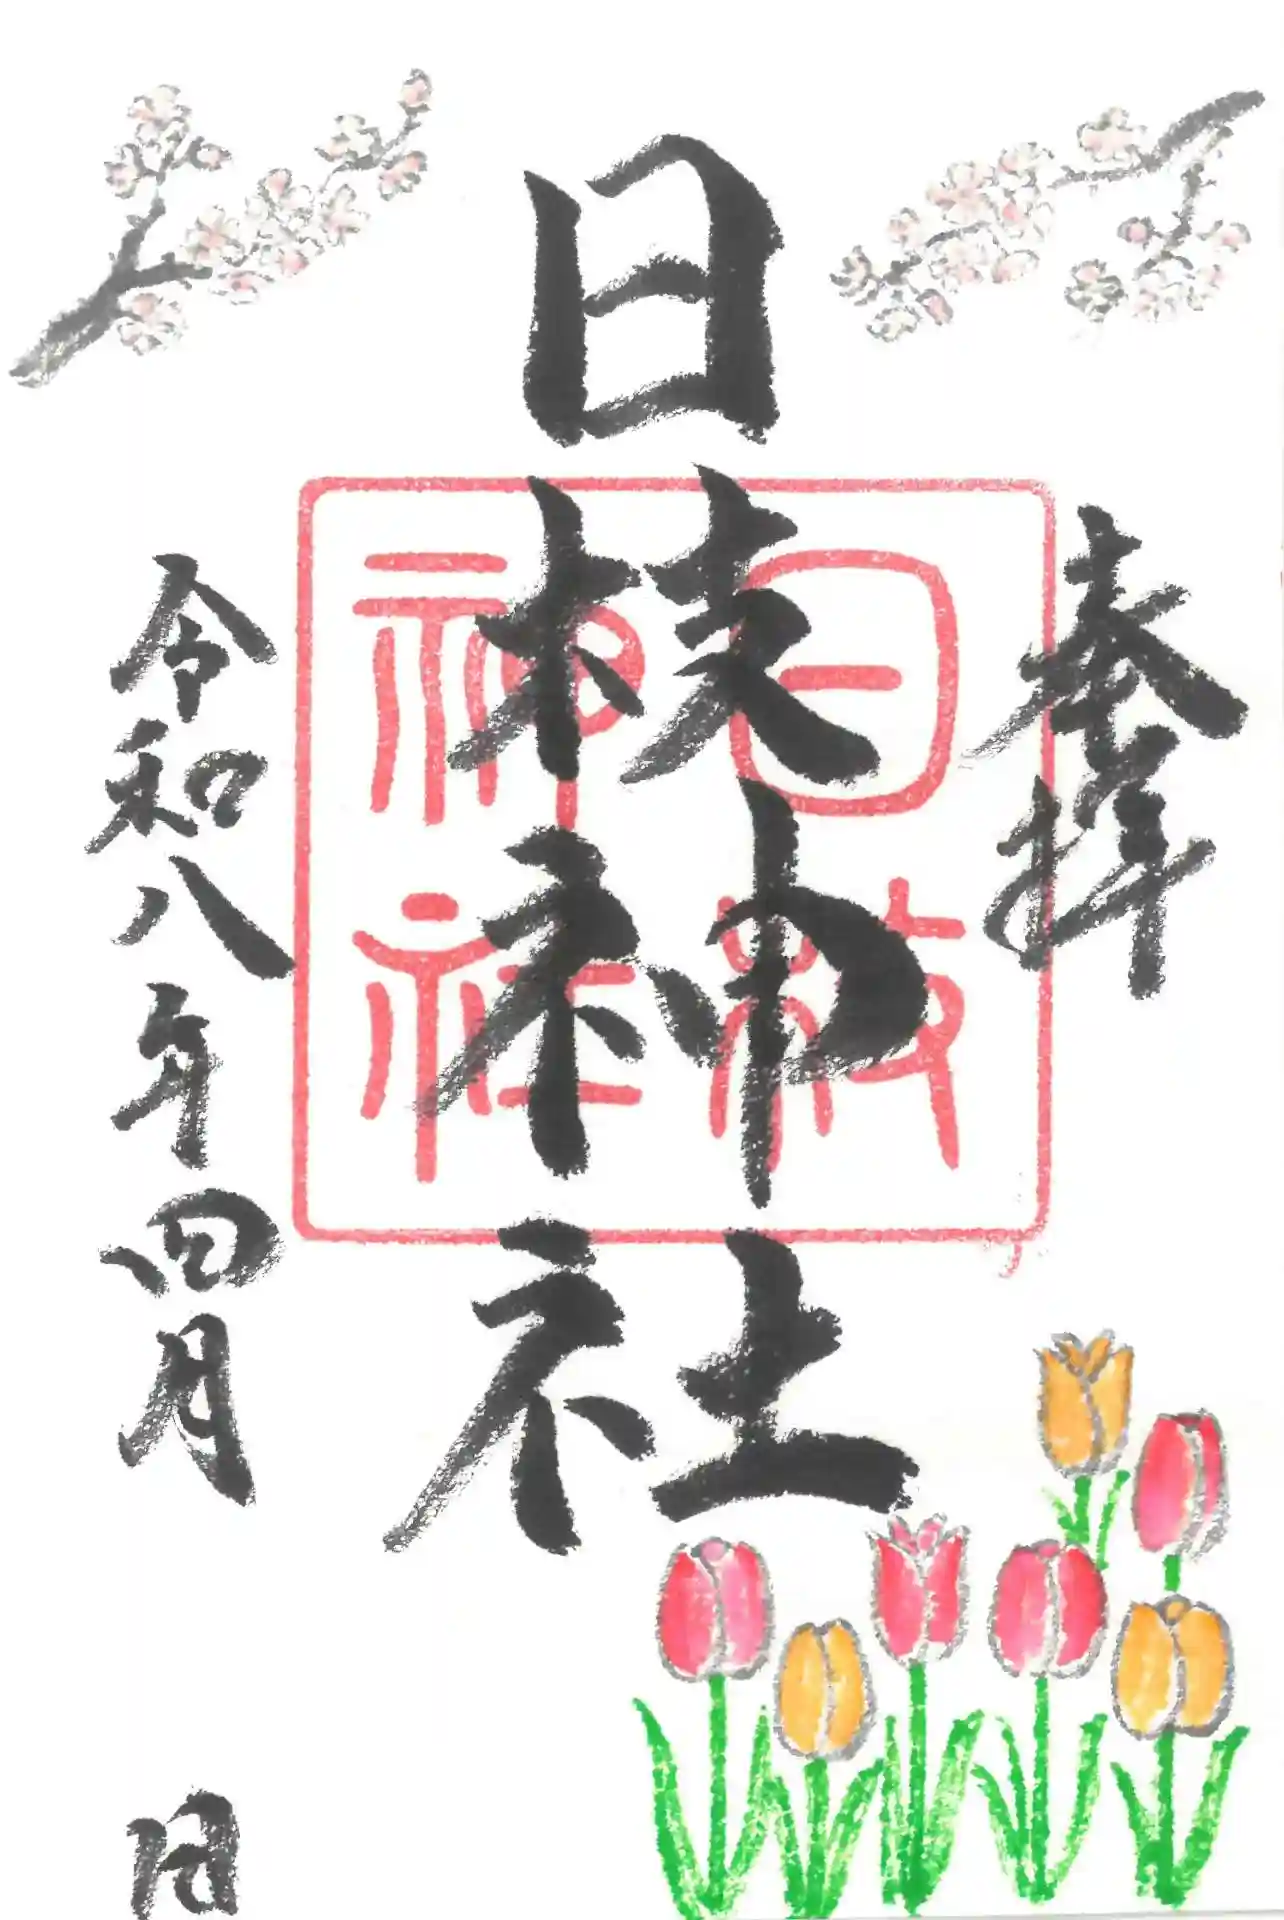 奉拝
日枝神社
日枝
神社
令和八年四月 日